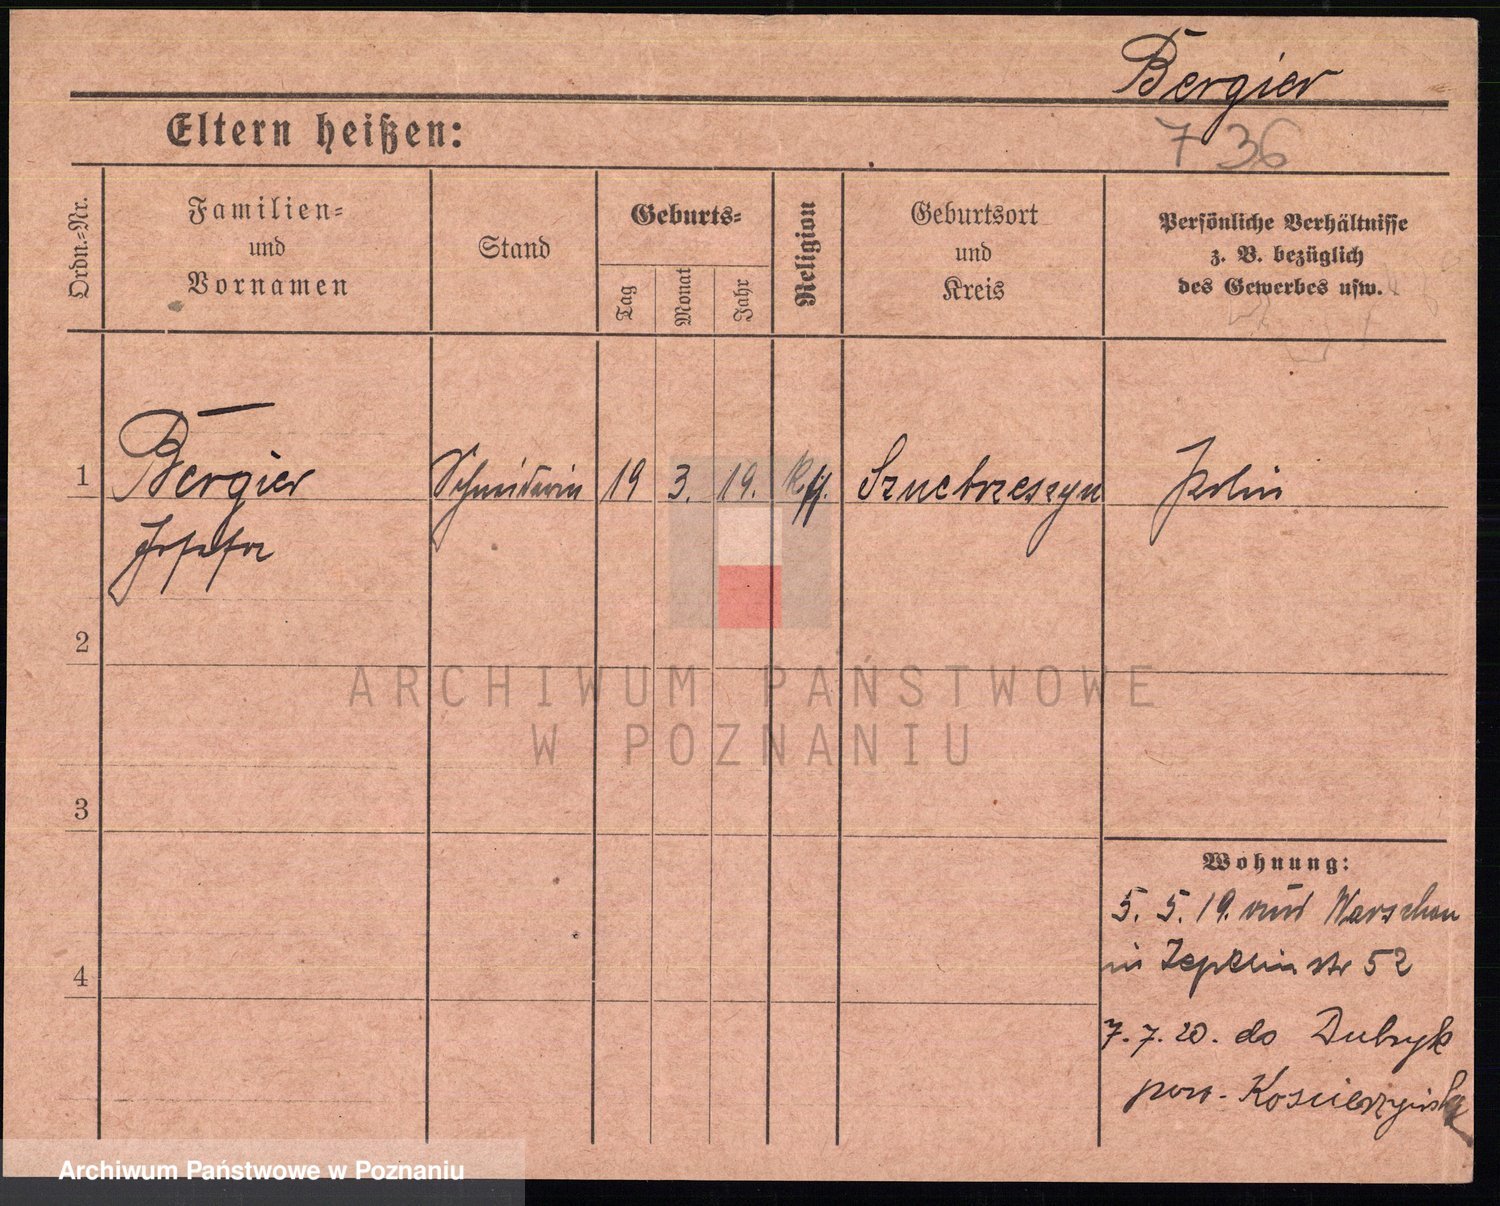 Bergier
7 36
Eltern heißen:
Ordn.=Nr.
Familien=
und
Vornamen
Stand
Geburts=
Tag
Monat
Jahr
Religion
Geburtsort
und
Kreis
Persönliche Verhältnisse
z. B. bezüglich
des Gewerbes usw.
1
Bergier
Josefa
Schneiderin
19
3.
19.
Szczebrzeszyn
Polin
2
3
4
Wohnung:
5. 5. 19. aus Warschau
in Zeppelinstr 52
7. 7. 20. do Dubryk
pow. Kościerzyński
ARCHIWUM PAŃSTWOWE
W POZNANIU
Archiwum Państwowe w Poznaniu